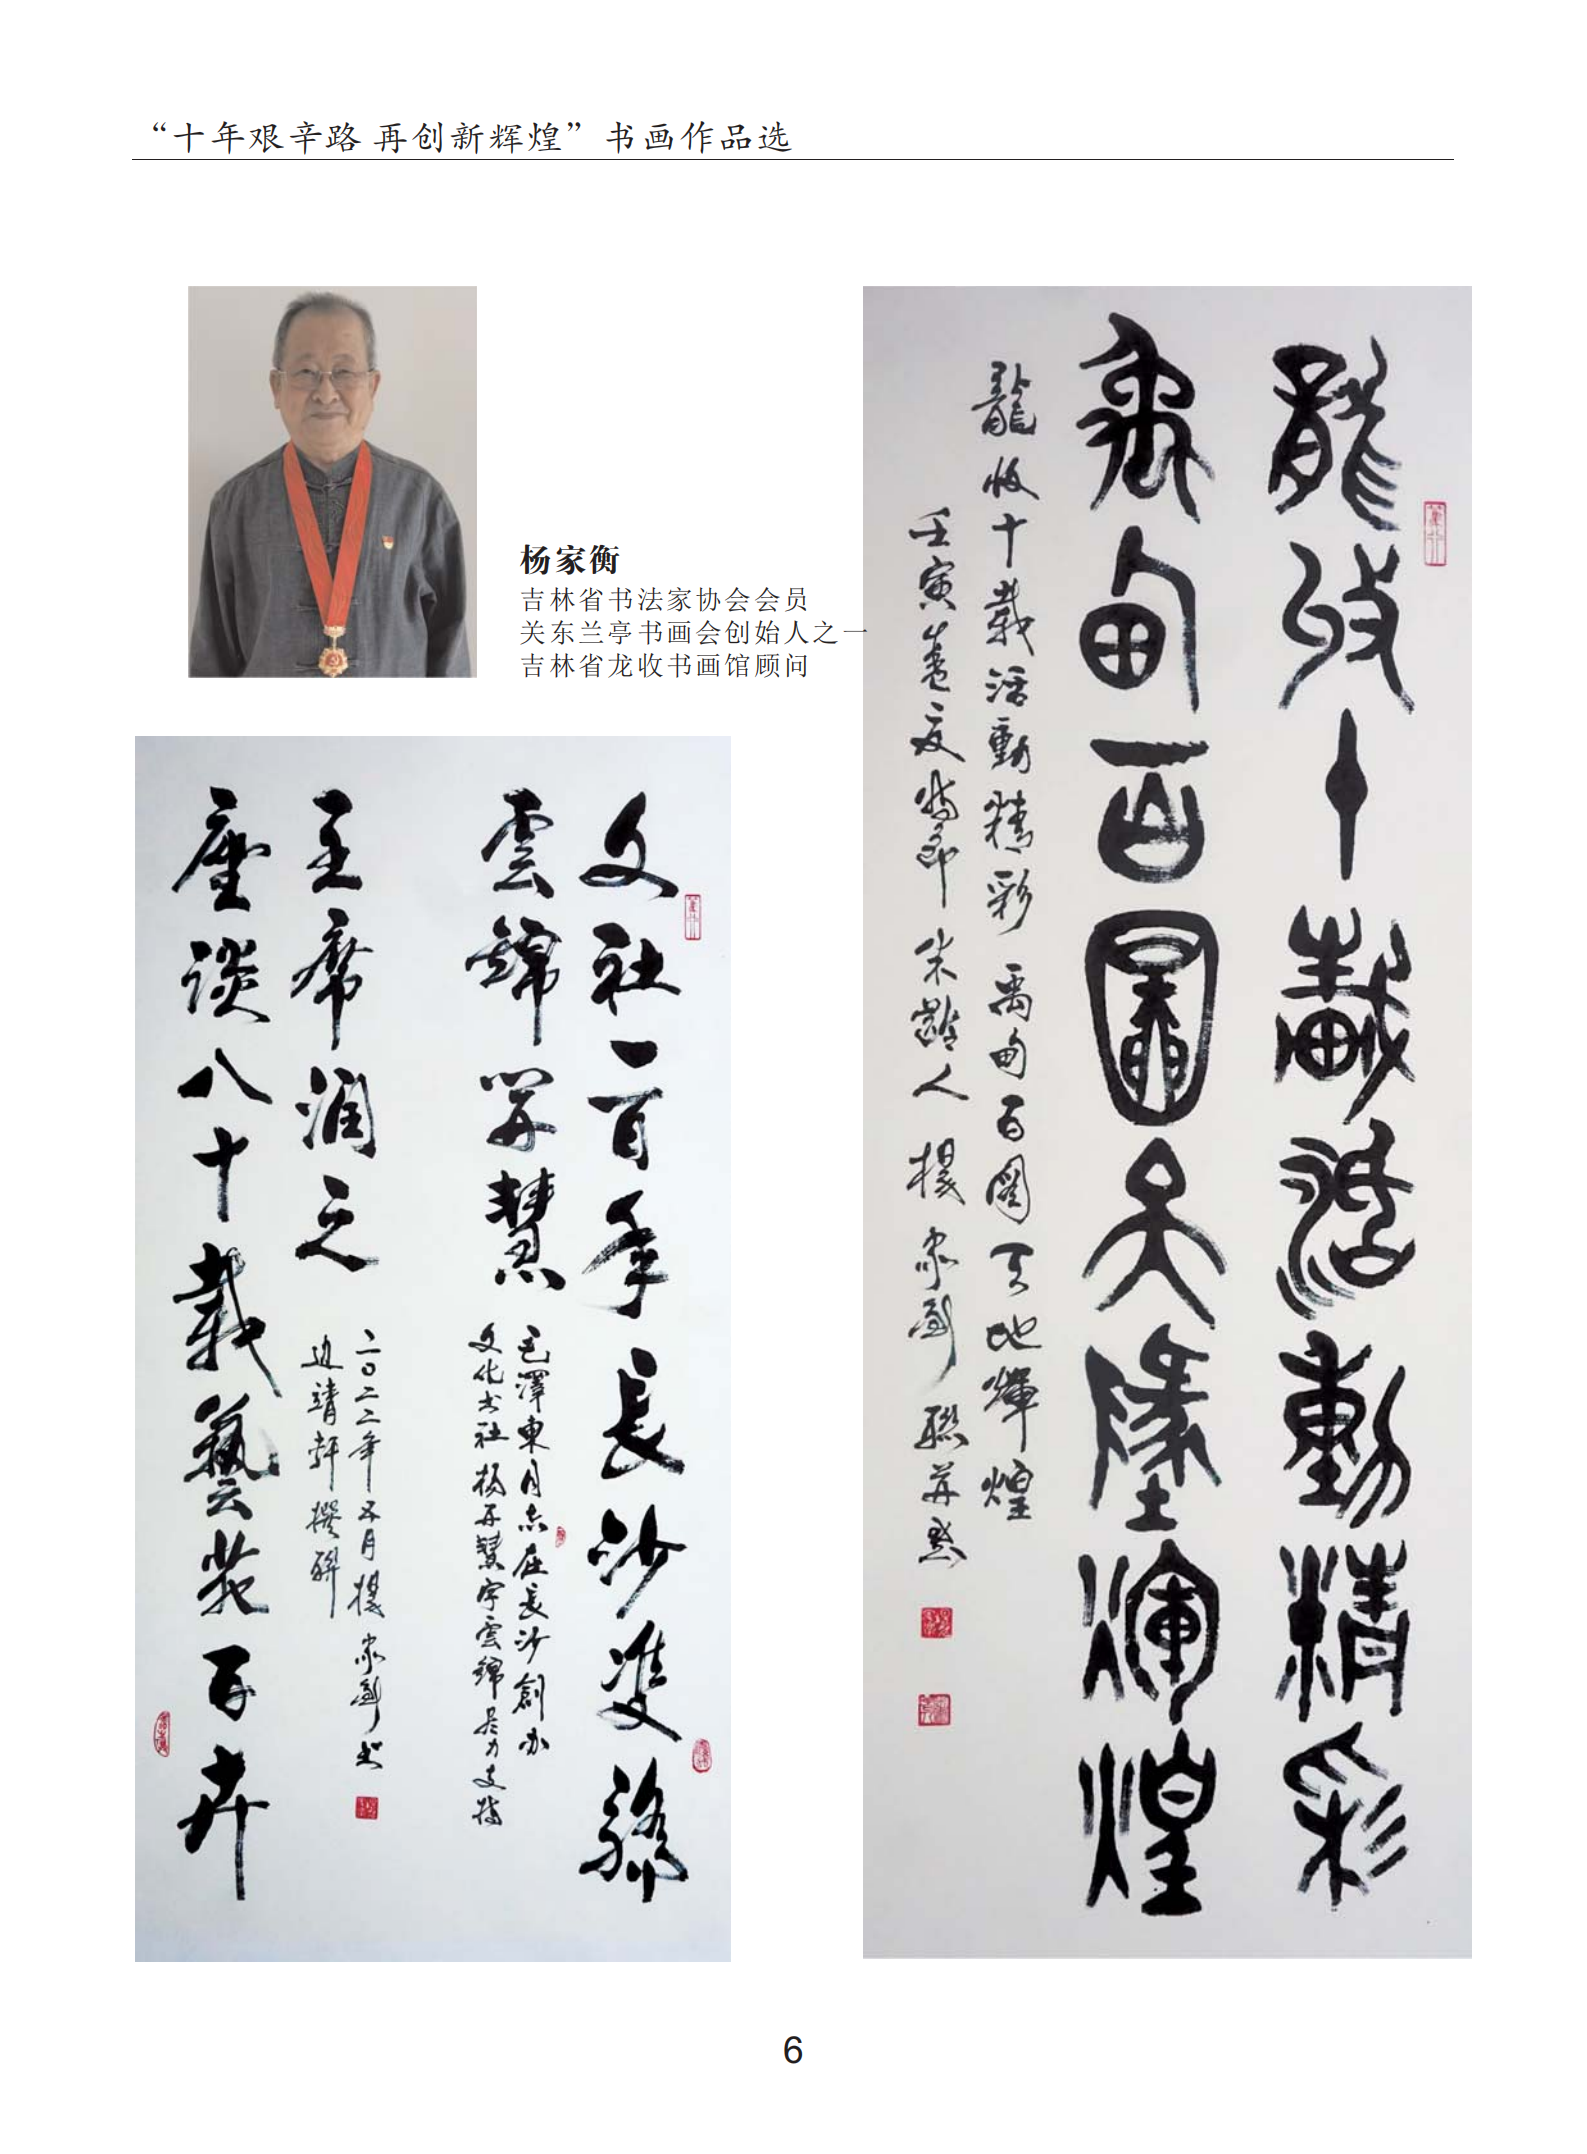 “十年艰辛路 再创新辉煌”书画作品选
杨家衡
吉林省书法家协会会员
关东兰亭书画会创始人之一
吉林省龙收书画馆顾问
龍收十載活動精彩
禹甸百圖天地輝煌
龍收十載活動精彩 禹甸百圖天地輝煌
壬寅春 朱齡人 楊家衡 聯并
文社一百年長沙雙
雲錦開慧
毛澤東 在長沙創办
文化书社楊开慧字雲錦尽力支持
主席潤之
二〇二二年五月楊家衡书
靖軒撰聯
座談八十載藝苑百卉
6